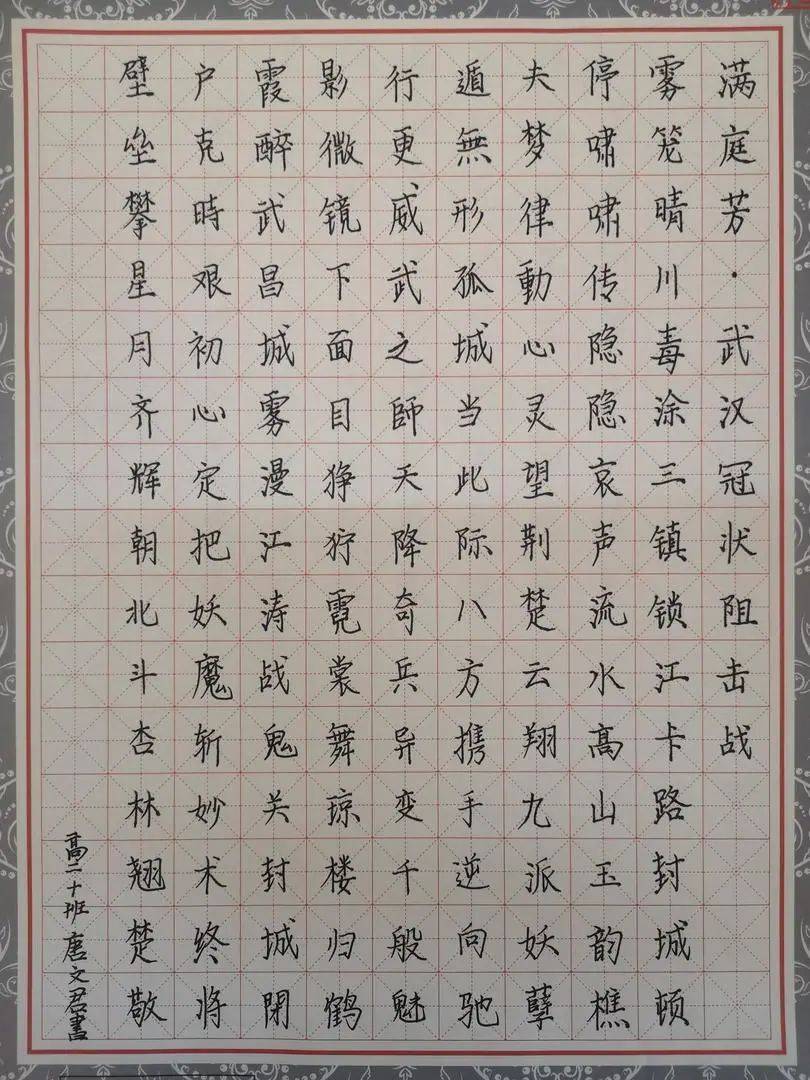 满庭芳·武汉冠状阻击战
雾笼晴川毒涂三镇锁江卡路封城顿
停啸啸传隐隐哀声流水高山玉韵樵
夫梦律動心灵望荆楚云翔九派妖孽
遁無形孤城当此际八方携手逆向驰
行更威武之師天降奇兵异变千般魅
影微镜下面目狰狞霓裳舞琼楼归鹤
霞醉武昌城雾漫江涛战鬼关封城閉
户克時艰初心定把妖魔斩妙术终将
壁垒攀星月齐辉朝北斗杏林翘楚敬
高二十班唐文君書